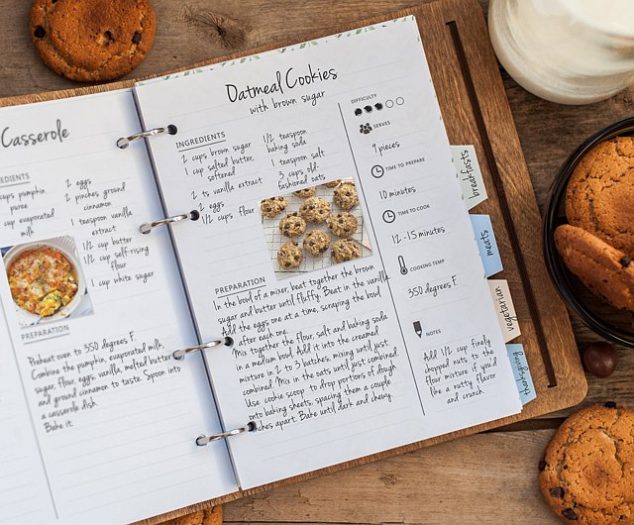 Casserole
INGREDIENTS
cups pumpkin
puree
cup evaporated
milk
2 eggs
2 pinches ground
cinnamon
1 teaspoon vanilla
extract
1/2 cup butter
1/2 cup self-rising
flour
1 cup white sugar
PREPARATION
Preheat oven to 350 degrees F.
Combine the pumpkin, evaporated milk,
sugar, flour, eggs, vanilla, melted butter
and ground cinnamon to taste. Spoon into
a casserole dish.
Bake it.
Oatmeal Cookies
with brown sugar
INGREDIENTS
2 cups brown sugar
1 cup salted butter,
softened
2 ts vanilla extract
2 eggs
1 1/2 cups flour
1/2 teaspoon
baking soda
1 teaspoon salt
3 cups old-
fashioned oats
PREPARATION
In the bowl of a mixer, beat together the brown
sugar and butter until fluffy. Beat in the vanilla.
Add the eggs one at a time, scraping the bowl
after each one.
Mix together the flour, salt and baking soda
in a medium bowl. Add it into the creamed
mixture in 2 to 3 batches, mixing until just
combined. Mix in the oats until just combined.
Use cookie scoop to drop portions of dough
onto baking sheets, spacing them a couple
inches apart. Bake until dark and chewy.
DIFFICULTY
SERVES
9 pieces
TIME TO PREPARE
10 minutes
TIME TO COOK
12-15 minutes
COOKING TEMP
350 degrees F
NOTES
Add 1/2 cup finely
chopped nuts to the
flour mixture if you'd
like a nutty flavor
and crunch.
breakfasts
meats
vegetarian
thanksgiving